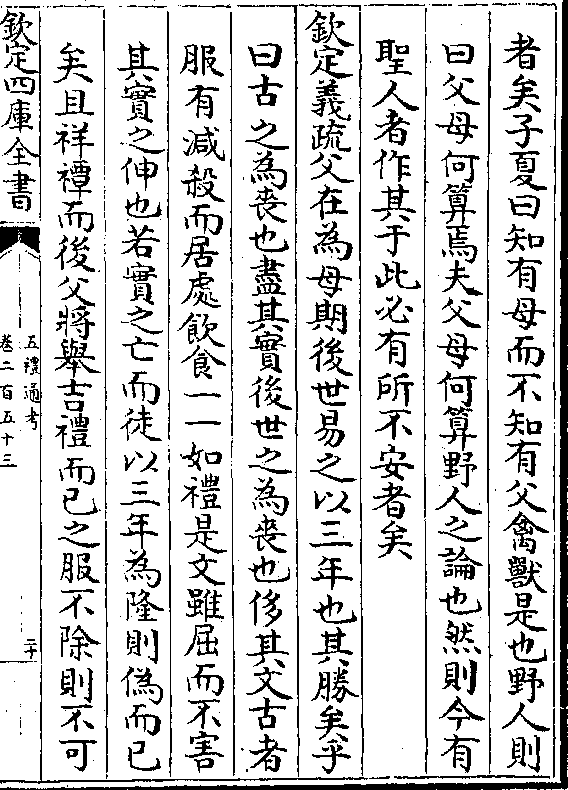 者矣子夏曰知有母而不知有父禽獸是也野人則
曰父母何算焉夫父母何算野人之論也然則今有
聖人者作其于此必有所不安者矣
欽定義疏父在為母期後世易之以三年也其勝矣乎
曰古之為喪也盡其實後世之為喪也侈其文古者
服有減殺而居處飲食一一如禮是文雖屈而不害
其實之伸也若實之亡而徒以三年為隆則偽而已
矣且祥禫而後父將舉吉禮而已之服不除則不可
欽定四庫全書
五禮通考
卷二百五十三
二十